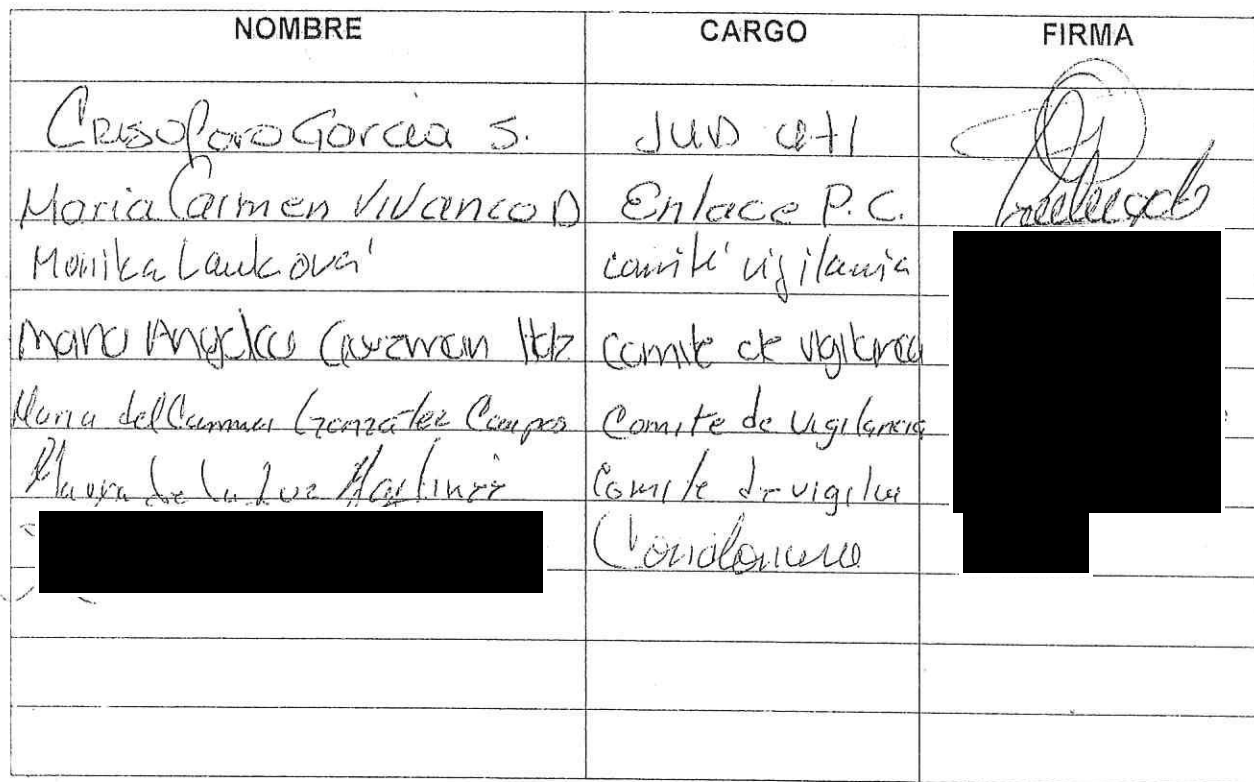 NOMBRE CARGO FIRMA
Crisoforo Garcia S. JUD
Maria Carmen Vivanco D Enlace P.C.
Monika Lauková comité vigilancia
Guzman Hdz Comite de vigilancia
Maria del Carmen González Campos Comite de Vigilancia
de la Luz Martinez Comite de